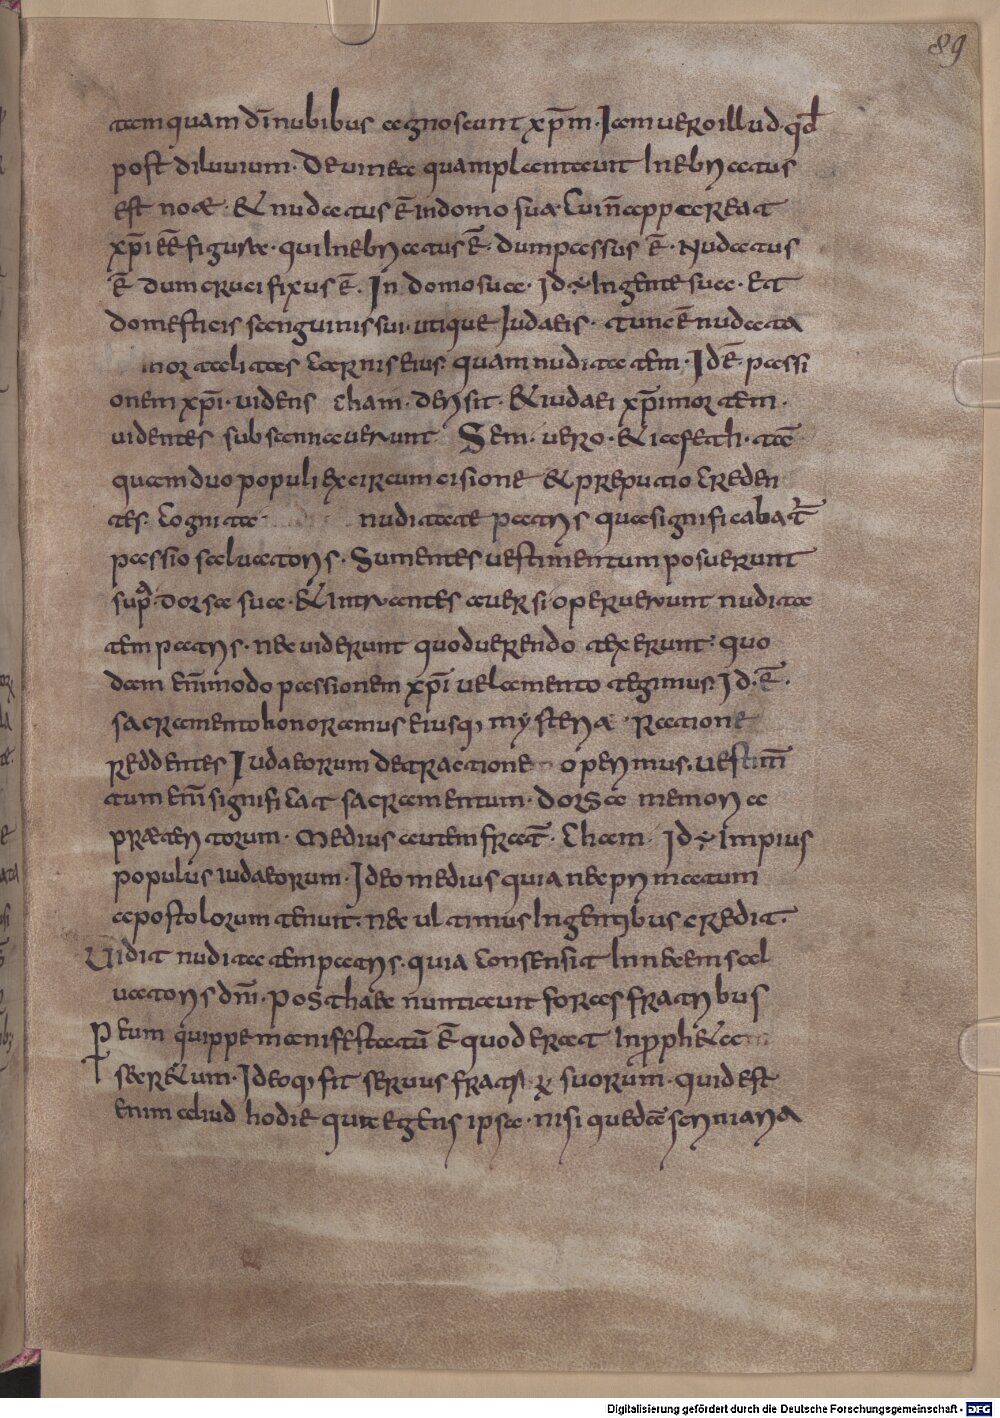 89
tam quam dnī nubibus agnoscunt xp̄m. Iam uero illud. qd̄
post diluuium. De uinea quamplantauit Inebriatus
est noæ. & nudatus ē In domo sua Cuī n̄ appareat
xp̄i eē figura. qui Inebriatus ē. dum passus ē. Nudatus
ē dum crucifixus ē. In domo sua. Id ÷ In gente sua. Et
domesticis sanguinis sui. utique Iudaeis. tunc ē nudata
mortalitas carnis eius. quam nuditatem. Id ē. passi
onem xp̄i. uidens cham. derisit. & iudaei xp̄i mortem.
uidentes subsannauerunt Sem. uero. & iafeth. tā
quam duo populi ex circumcisione & preputio creden
tes. Cognita nuditate patris quae significabat̄
passio saluatoris. Sumentes uestimentum posuerunt
sup̄ dorsa sua. & intrantes auersi operuerunt nudita
tem patris. nec uiderunt quod uerendo texerunt. quo
dam enī modo passionem xp̄i uelamento tegimus. Id. ē.
sacramento honoramus eiusq, mysteria. Ratione
reddentes Iudaeorum detractione operimus. Uestim̄
tum enī significat sacramentum. dorsa memoria
præteritorum. Medius autem frat̄. Cham. Id ÷ Impius
populus iudaeorum. Ideo medius quia nec primatum
apostolorum tenuit. nec ultimus In gentibus credit.
Uidit nuditatem patris. quia consensit In necem sal
uatoris dnī. Post haec nuntiauit foras fratribus
P eum quippe manifestatū ē quod erat In proph&a
secr&um. Ideoq, fit seruus fratrū suorum. quid est
enim aliud hodie quae gens ipsa. nisi quedā scriniaria
Digitalisierung gefördert durch die Deutsche Forschungsgemeinschaft - DFG